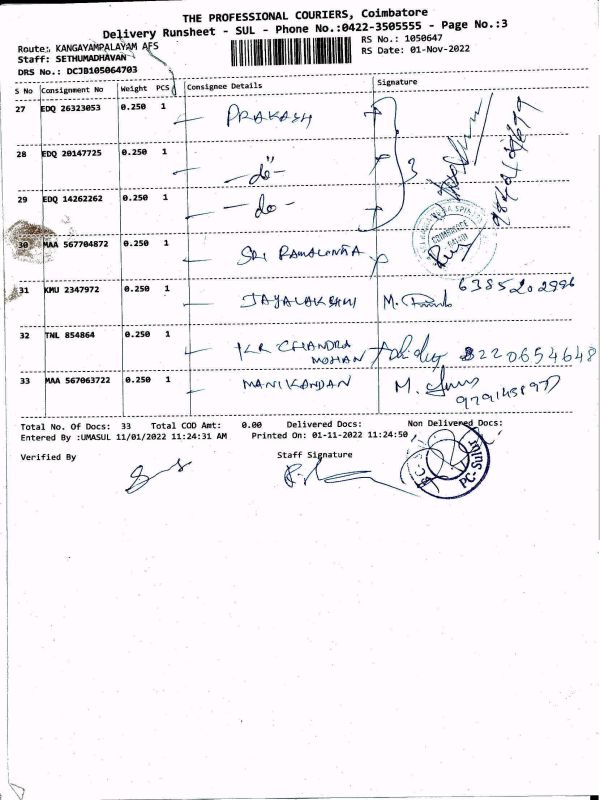 THE PROFESSIONAL COURIERS, Coimbatore
Delivery Runsheet - SUL - Phone No.:0422-3505555 - Page No.:3
Route: KANGAYAMPALAYAM AFS
RS No.: 1050647
Staff: SETHUMADHAVAN
RS Date: 01-Nov-2022
DRS No.: DCJB105064703
S No Consignment No Weight PCS Consignee Details Signature
27 EDQ 26323053 0.250 1 PRAKASH
28 EDQ 20147725 0.250 1 -do-
29 EDQ 14262262 0.250 1 -do-
3
30 MAA 567704872 0.250 1 SRI
31 KMU 2347972 0.250 1 JAYALAKSHMI M. 6385202996
32 TNL 854864 0.250 1 KR CHANDRA MOHAN 8220654648
33 MAA 567063722 0.250 1 MANIKANDAN M.
Total No. Of Docs: 33 Total COD Amt: 0.00 Delivered Docs: Non Delivered Docs:
Entered By :UMASUL 11/01/2022 11:24:31 AM Printed On: 01-11-2022 11:24:50
Verified By Staff Signature
PC-Sulur